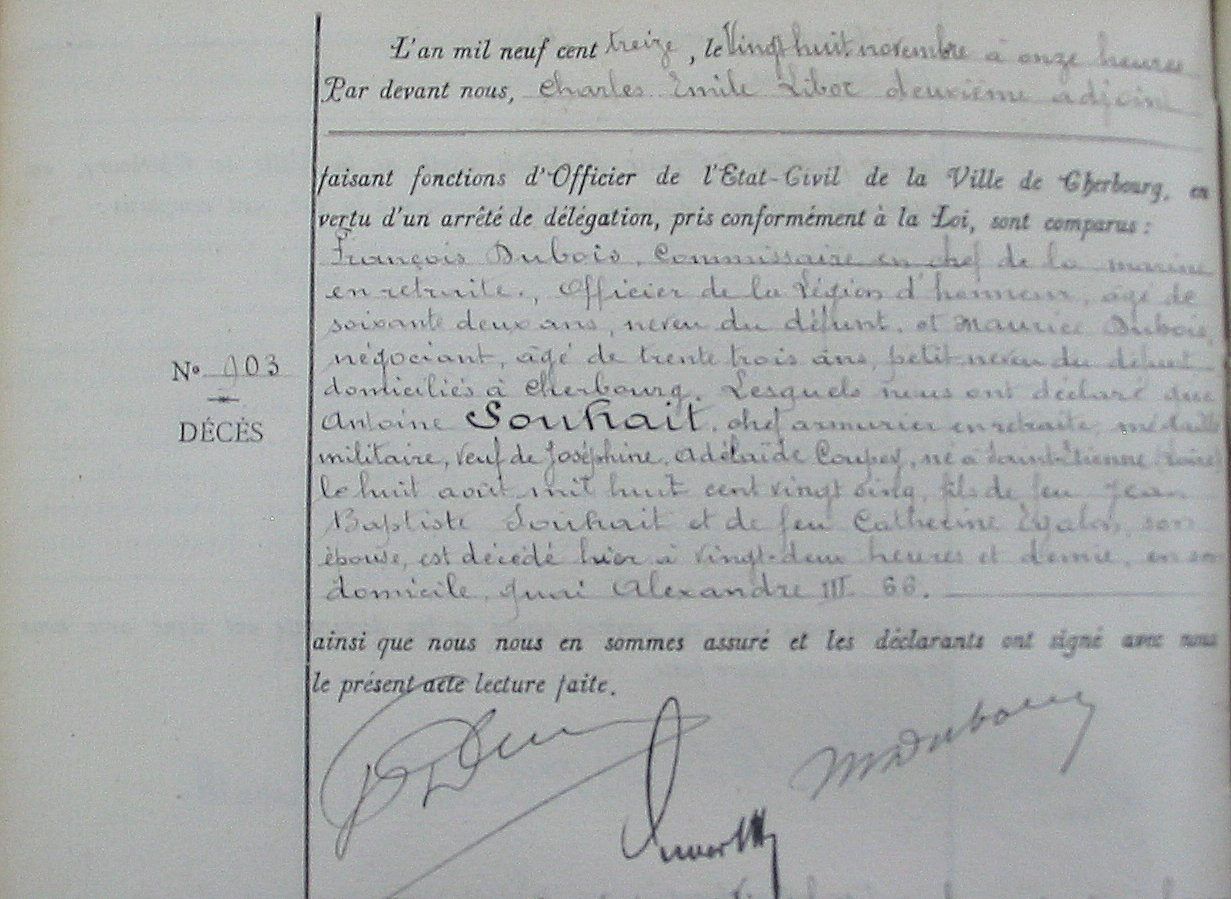 L'an mil neuf cent treize, le Vingt huit novembre à onze heures
Par devant nous, Charles Emile Liboz deuxième adjoint
faisant fonctions d'Officier de l'Etat-Civil de la Ville de Cherbourg, en
vertu d'un arrêté de délégation, pris conformément à la Loi, sont comparus :
François Dubois, Commissaire en chef de la marine
en retraite, officier de la Légion d'honneur, âgé de
soixante deux ans, neveu du défunt, et Maurice Dubois,
négociant, âgé de trente trois ans, petit neveu du défunt
domiciliés à Cherbourg. Lesquels nous ont déclaré que
Antoine Souhait, chef armurier en retraite, médaille
militaire, veuf de Joséphine, Adélaïde Coupey, né à Saint-Etienne (Loire)
le huit août mil huit cent vingt cinq, fils de feu Jean
Baptiste Souhait et de feu Catherine son
épouse, est décédé hier à vingt-deux heures et demie, en son
domicile, quai Alexandre III. 66.
ainsi que nous nous en sommes assuré et les déclarants ont signé avec nous
le présent acte lecture faite.
Nº 903
DÉCÉS